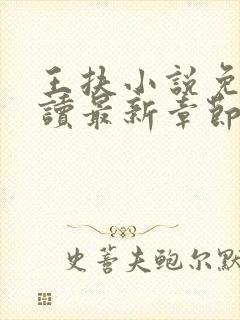 王扶小說免
讀最新章節
史蒂夫鲍尔默